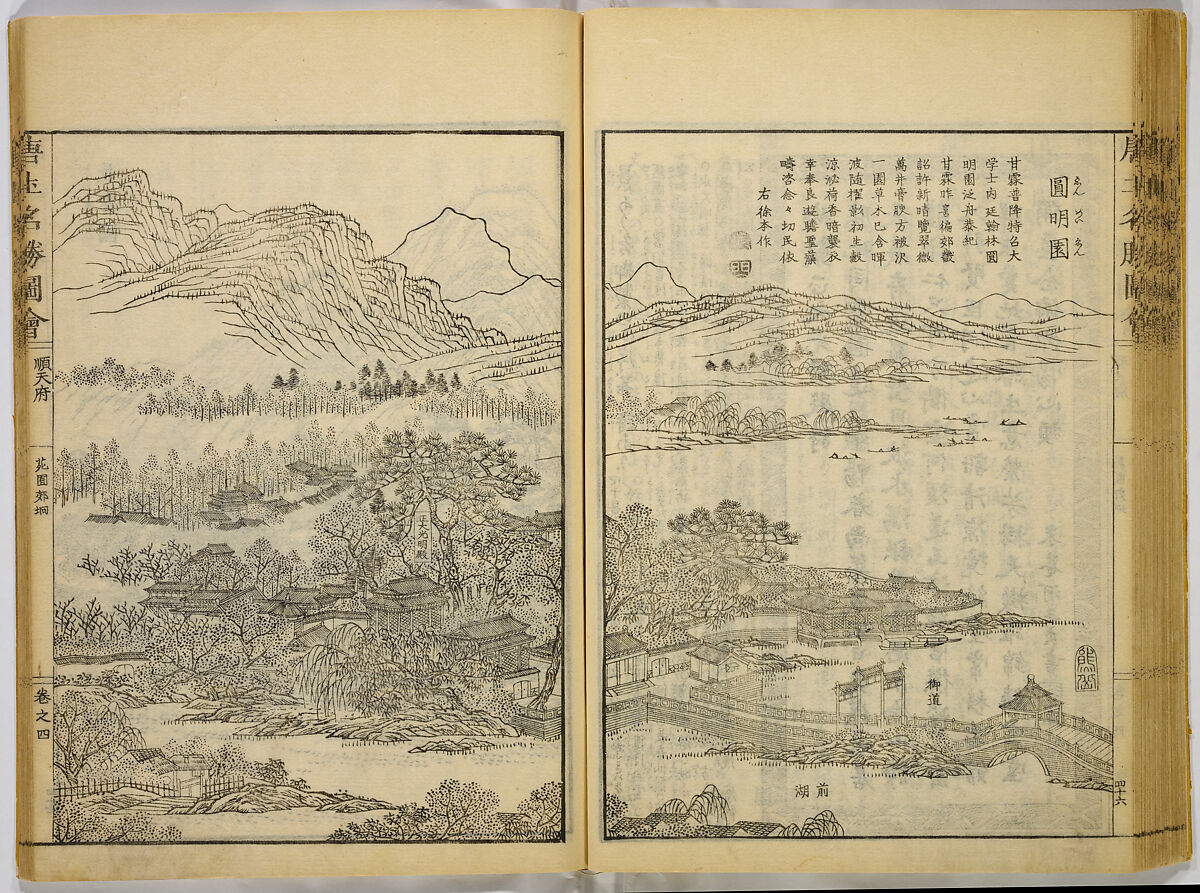 圓明園
ゑん めい ゑん
甘霖普降特召大
学士内廷翰林圓
明園泛舟恭紀
甘霖昨喜徧郊畿
詔許新晴覽翠微
萬井膏腴方被沢
一圓草木已含暉
波隨櫂影初生縠
涼沁荷香暗襲衣
幸奉良遊聽聖藻
疇咨念々切民依
右徐本作
御道
前湖
四十六
正大光明殿
唐土名勝圖會
順天府
苑囿郊坰
卷之四